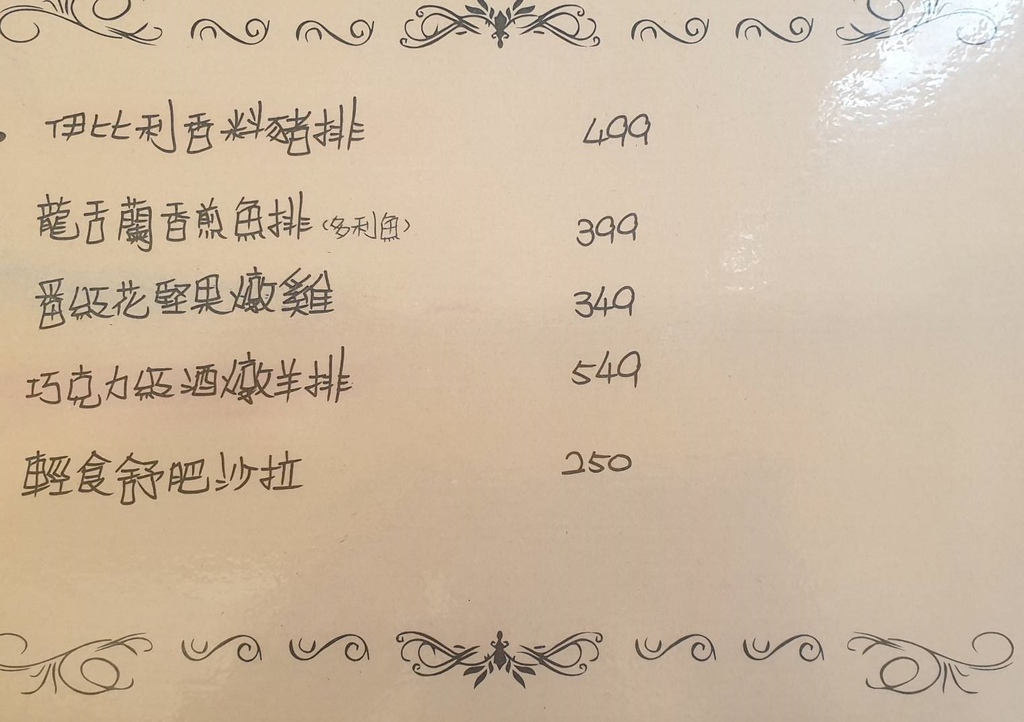 伊比利香料豬排 499
龍舌蘭香煎魚排(多利魚) 399
番紅花堅果燉雞 349
巧克力紅酒燉羊排 549
輕食舒肥沙拉 250